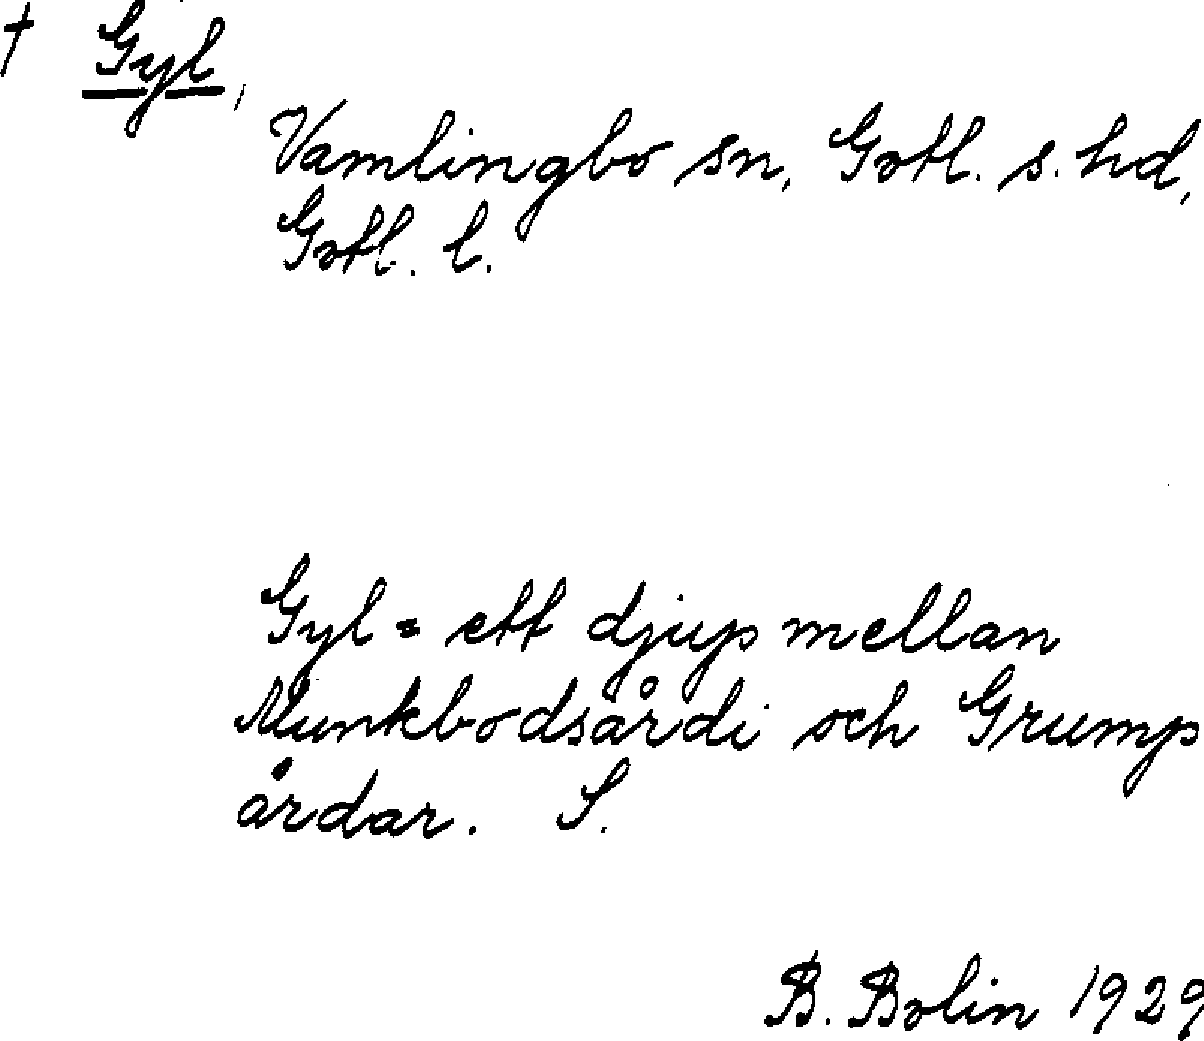 † Gyl,
Vamlingbo sn, Gotl. s. hd,
Gotl. l.
Gyl = ett djup mellan
Munkbodsårdi och Grump
årdar. S.
B. Bolin 1929